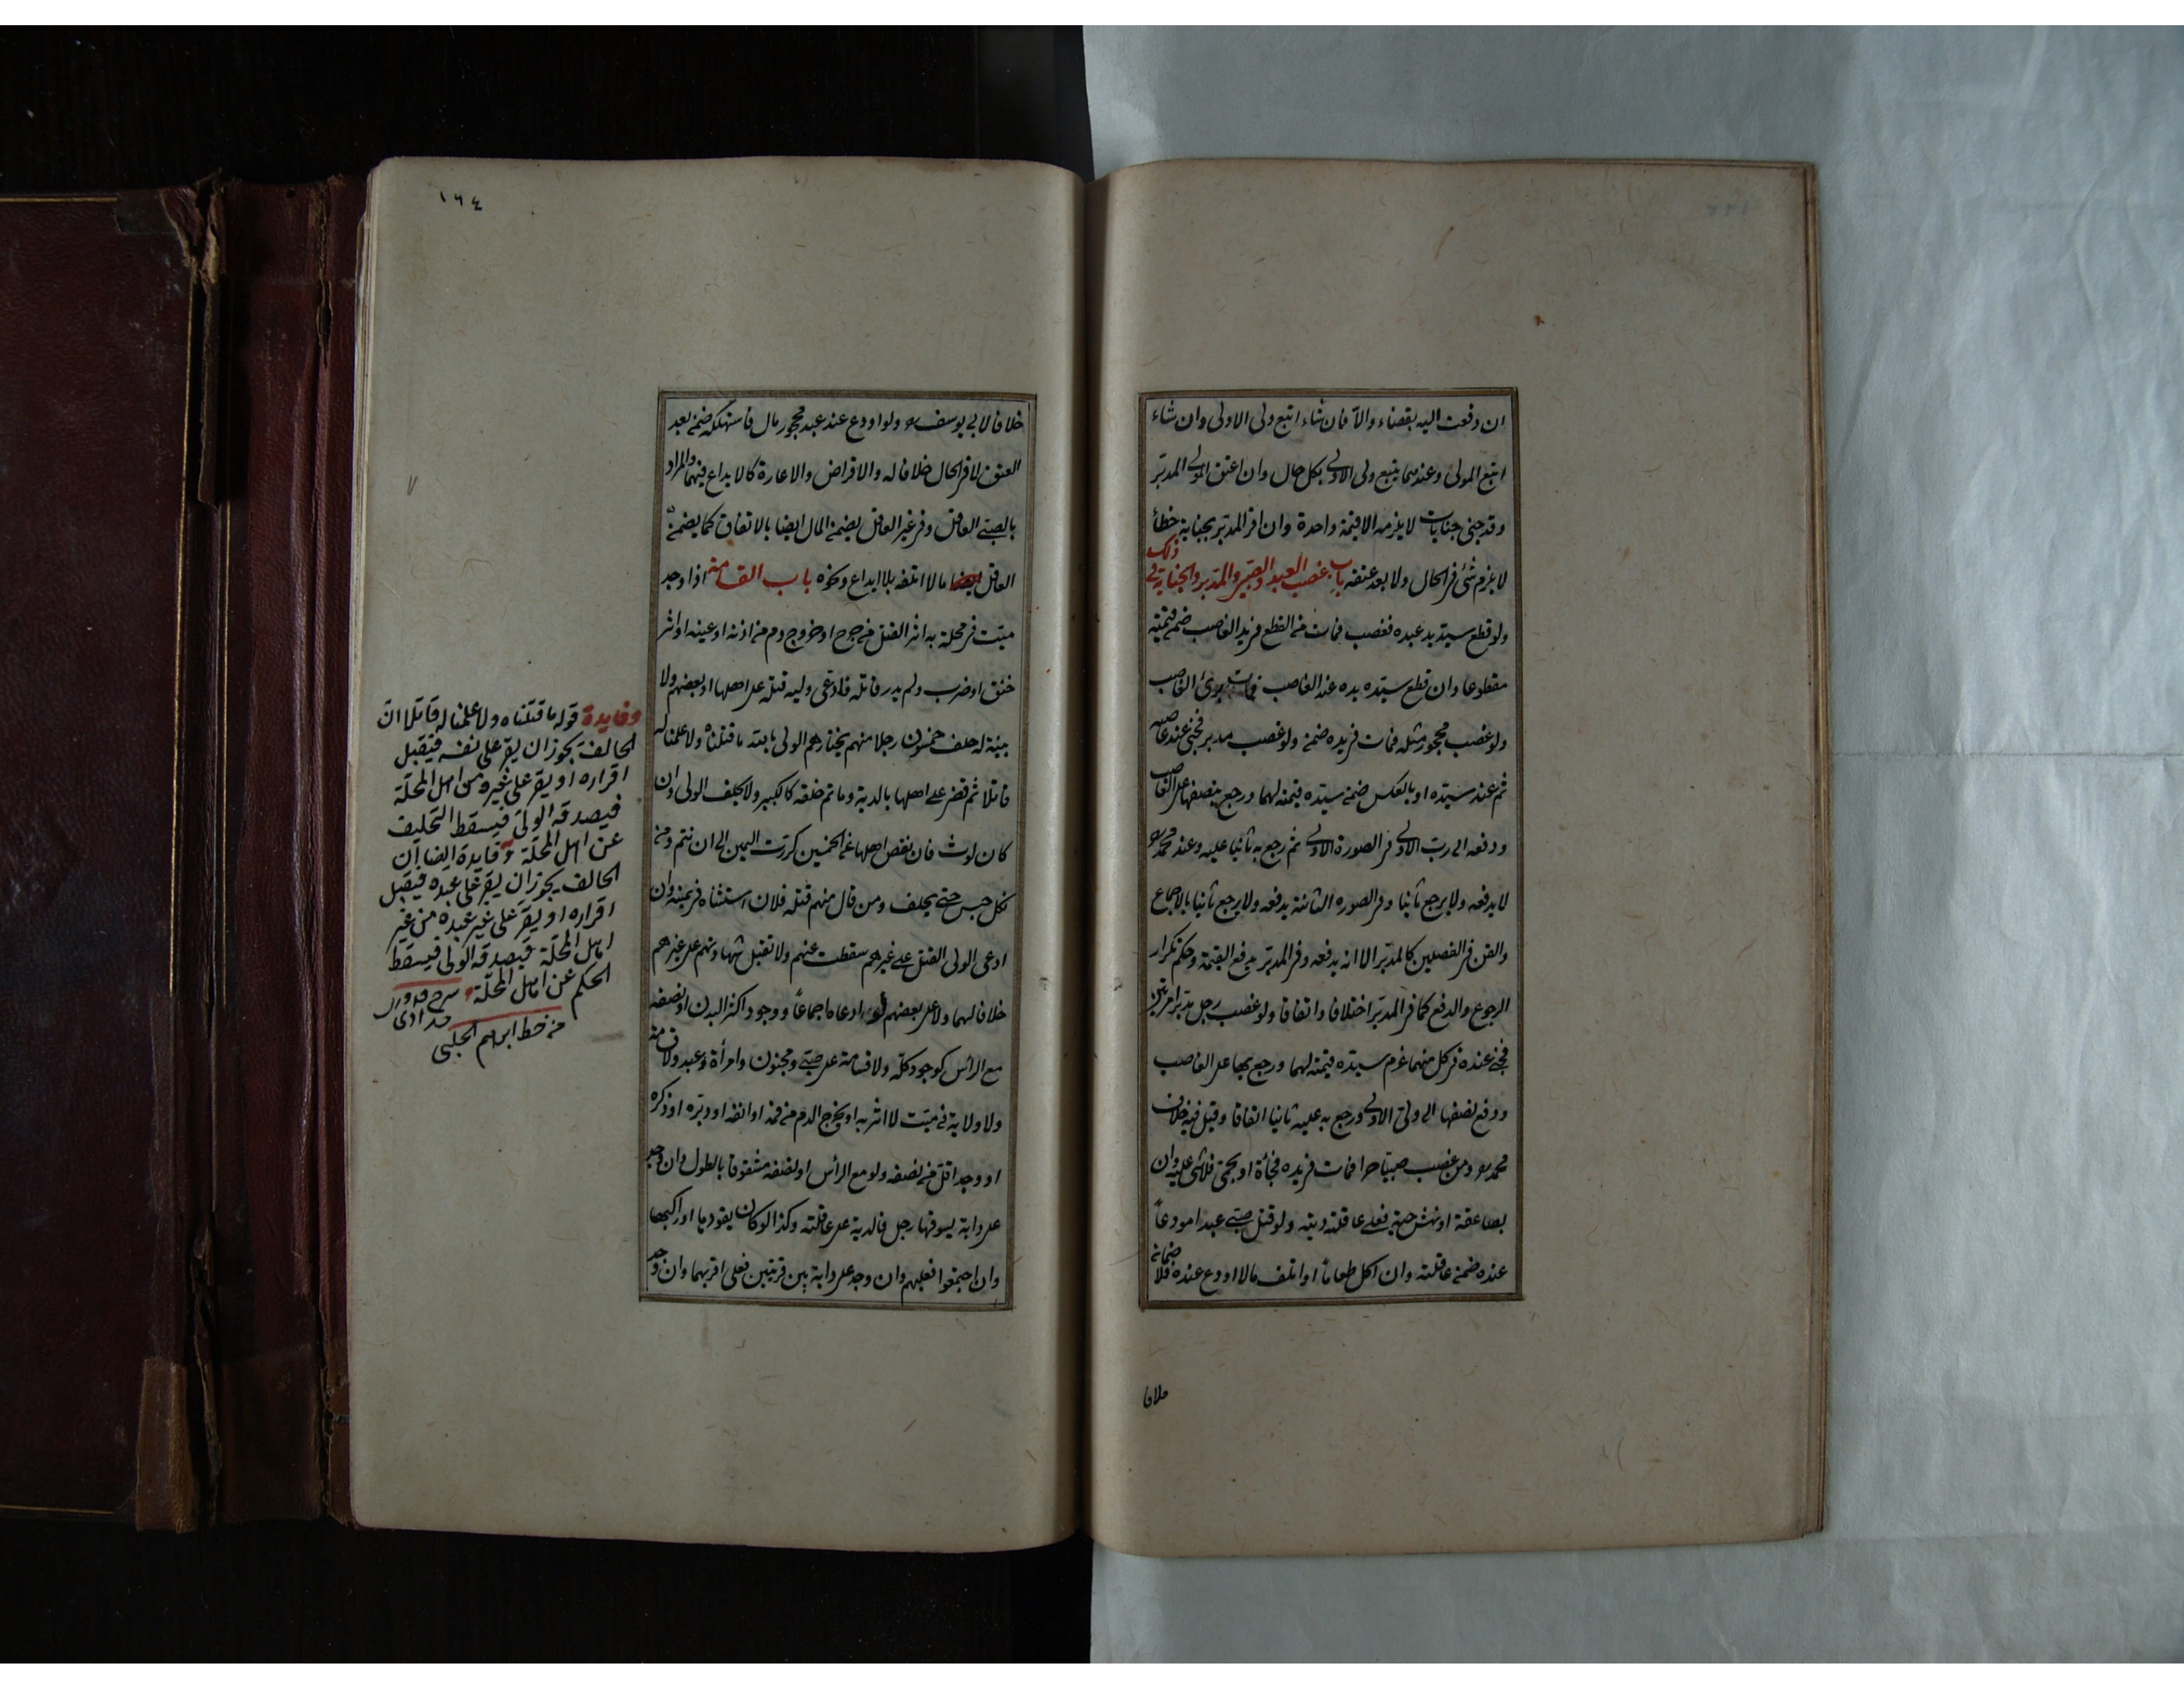 ان دفعت اليه بقضاء والآ فان شاء اتبع ولى الاولى وان شاء
اتبع المولى وعندهما يتبع ولى الاولى بكل حال وان اعتق المولى المدبر
وقد جنى جنايات لا يلزمه الا قيمة واحدة وان اقر المدبر بجناية خطأ
لا يلزم شئ فى الحال ولا بعد عتقه باب غصب العبد والصبى والمدبر والجناية فى ذلك
ولو قطع سيد يد عبده فغصب فمات من القطع فى يد الغاصب ضمن قيمته
مقطوعا وان قطع سيده يده عند الغاصب فمات برئ الغاصب
ولو غصب محجور مثله فمات فى يده ضمن ولو غصب مدبر فجنى عند غاصبه
ثم عند سيده او بالعكس ضمن سيده قيمته لهما ورجع بنصفها على الغاصب
ودفعه الى رب الاولى فى الصورة الاولى ثم رجع به ثانيا عليه وعند محمد
لا يدفعه ولا يرجع ثانيا وفى الصوره الثانية يدفعه ولا يرجع ثانيا بالاجماع
والقن فى الفصلين كالمدبر الا انه يدفعه وفى المدبر يدفع القيمة وحكم تكرار
الرجوع والدفع كما فى المدبر اختلافا واتفاقا ولو غصب رجل مدبرا مرتين
فجنى عنده فى كل منهما غرم سيده قيمته لهما ورجع بها على الغاصب
ودفع نصفها الى ولى الاولى ورجع به عليه ثانيا اتفاقا وقيل فيه خلاف
محمد ومن غصب صبيا حرا فمات فى يده فجأة او بحمى فلا شئ عليه وان
بصاعقة او نهش حية فعلى عاقلته ديته ولو قتل صبى عبدا مودعاً
عنده ضمن عاقلته وان اكل طعاما او اتلف مالا اودع عنده فلا ضمان
خلافا
١٦٤
خلافا لابى يوسف ولو اودع عند عبد محجور مال فاستهلكه ضمن بعد
العتق لا فى الحال خلافا له والاقراض والاعارة كالايداع فيهما والمراد
بالصبى العاقل وفى غير العاقل يضمن المال ايضا بالاتفاق كما يضمن
العاقل مالا اتلفه بلا ايداع ونحوه باب القسامة اذا وجد
ميت فى محلة به اثر القتل من جرح او خروج دم من اذنه او عينه او اثر
خنق او ضرب ولم يدر قاتله فادعى وليه قتله على اهلها او بعضهم ولا
بينة له حلف خمسون رجلا منهم يختارهم الولى بالله ما قتلناه ولا علمنا له
قاتلا ثم قضى على اهلها بالدية وما تم خلقه كالكبير ولا يحلف الولى وان
كان لوث فان نقص اهلها عن الخمسين كررت اليمين الى ان تتم ومن
نكل حبس حتى يحلف ومن قال منهم قتله فلان استثناه فى يمينه وان
ادعى الولى القتل على غيرهم سقطت عنهم ولا تقبل شهادتهم على غيرهم
خلافا لهما ولا على بعضهم لو ادعاه اجماعاً ووجود اكثر البدن او نصفه
مع الرأس كوجود كله ولا قسامة على صبى ومجنون وامرأة وعبد ولا قسامة
ولا دية فى ميت لا اثر به او يخرج الدم من فمه او انفه او دبره او ذكره
او وجد اقل من نصفه ولو مع الرأس او نصفه مشقوقا بالطول وان وجد
على دابة يسوقها رجل فالدية على عاقلته وكذا لو كان يقودها او راكبها
وان اجتمعوا فعليهم وان وجد على دابة بين قريتين فعلى اقربهما وان وجد
وفايدة قوله ما قتلناه ولا علمنا له قاتلا ان
الحالف يجوز ان يقر على نفسه فيقبل
اقراره او يقر على غيره من اهل المحلة
فيصدقه الولى فيسقط التحليف
عن اهل المحلة وفايدة ايضا ان
الحالف يجوز ان يقر على عبده فيقبل
اقراره او يقر على غير عبده من غير
اهل المحلة فيصدقه الولى فيسقط
الحكم عن اهل المحلة شرح قدورى
حدادى
من خط ابرهيم الحلبى